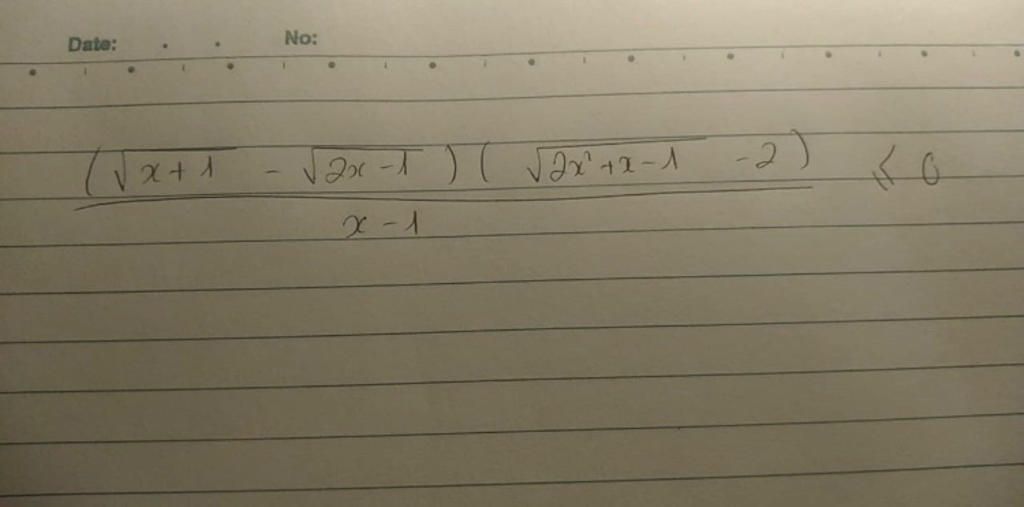 Date: . . No:
(√(x+1) - √(2x-1)) (√(2x²+x-1) -2) / (x-1) ≤ 0